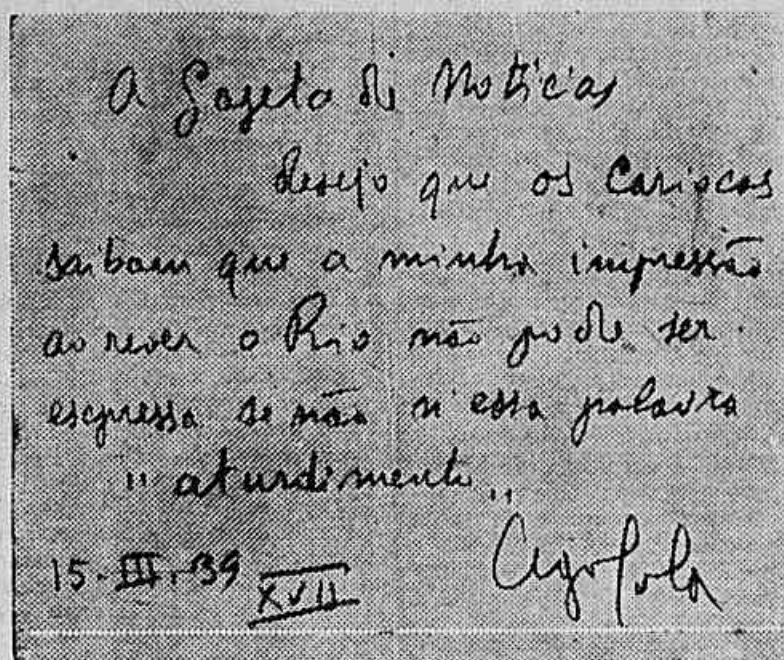 A Gazeta de Noticias
desejo que os Cariocas
saibam que a minha impressão
ao rever o Rio não pode ser
espressa se não n'essa palavra
" aturdimento "
15-III-39 XVII